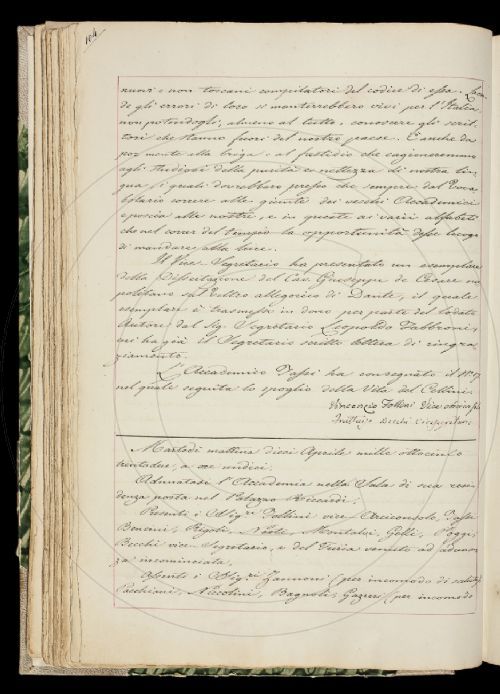 184
nuovi e non toscani compilatori del codice di essa. Laon-
de gli errori di loro si manterrebbero vivi per l'Italia,
non potendogli, almeno al tutto, conoscere gli scrit-
tori che stanno fuori del nostro paese. È anche da
por mente alla briga, e al fastidio che cagioneremmo
agli studiosi della purità e nettezza di nostra lin-
gua, i quali dovrebbero presso che sempre dal Voca-
bolario correre alle giunte dei vecchi Accademici
e poscia alle nostre, e in queste ai varii alfabeti
che nel correr del tempo la opportunità desse luogo
di mandare alla luce.
Il Vice Segretario ha presentato un esemplare
della Dissertazione del Cav. Giuseppe de Cesare na-
politano sul Veltro allegorico di Dante, il quale
esemplare è trasmesso in dono per parte del lodato
Autore dal Sig. Segretario Leopoldo Fabbroni,
cui ha già il Segretario scritto lettera di ringra-
ziamento.
L'Accademico Tassi ha consegnato il N.° 
nel quale seguita lo spoglio della Vita del Cellini.
Vincenzio Follini Vice Arciconsolo
Fruttuoso Becchi Vicesegretario
Martedì mattina dieci Aprile mille ottocento
trentadue, a ore undici.
Adunatasi l'Accademia nella Sala di sua resi-
denza posta nel Palazzo Riccardi.
Presenti i Sigg.ri Follini vice Arciconsolo, Tassi
Bencini, Rigoli, Nesti, Montalvi, Gelli, Poggi,
Becchi vice Segretario, e del Furia venuto ad adunan-
za incominciata.
Assenti i Sigg.ri Zannoni (per incomodo di salute)
Pacchiani, Niccolini, Bagnoli, Gazzeri (per incomodo